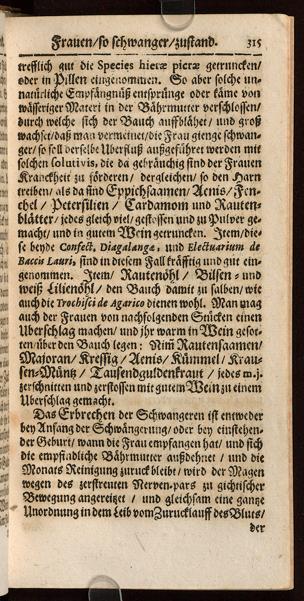 Frauen/so schwanger/zustand. 315
trefflich gut die Species hieræ picræ getruncken/
oder in Pillen eingenommen. So aber solche un-
natürliche Empfängnüß entsprünge oder käme von
wässeriger Materi in der Bährmutter verschlossen/
durch welche sich der Bauch auffblähet/ und groß
wachset/daß man vermeinet/die Frau gienge schwan-
ger/so soll derselbe Uberfluß außgeführet werden mit
solchen solutivis, die da gebräuchig sind der Frauen
Kranckheit zu fördern/ dergleichen/ so den Harn
treiben/ als da sind Eppichsaamen/ Aenis/ Fen-
chel / Petersilien / Cardamom und Rauten-
blätter/ jedes gleich viel/gestossen und zu Pulver ge-
macht/ und in gutem Wein getruncken. Item/die-
se beyde Confect, Diagalanga, und Electuarium de
Baccis Lauri, sind in diesem Fall kräfftig und gut ein-
genommen. Item/ Rautenöhl / Bilsen- und
weiß Lilienöhl / den Bauch damit zu salben/ wie
auch die Trochisci de Agarico dienen wohl. Man mag
auch der Frauen von nachfolgenden Stücken einen
Uberschlag machen/ und ihr warm in Wein gesot-
ten/über den Bauch legen: Nim Rautensaamen/
Majoran/ Kressig/ Aenis/ Kümmel/ Krau-
sen-Müntz / Tausendguldenkraut / jedes m.j.
zerschnitten und zerstossen mit gutem Wein zu einem
Uberschlag gemacht.
Das Erbrechen der Schwangeren ist entweder
bey Anfang der Schwängerung/ oder bey einstehen-
der Geburt/ wann die Frau empfangen hat/ und sich
die empfindliche Bährmutter außdehnet / und die
Monats Reinigung zuruck bleibet/ wird der Magen
wegen des zerstreuten Nerven-pars zu gichtischer
Bewegung angereitzet / und gleichsam eine gantze
Unordnung in dem Leib vom Zurucklauff des Bluts/
der